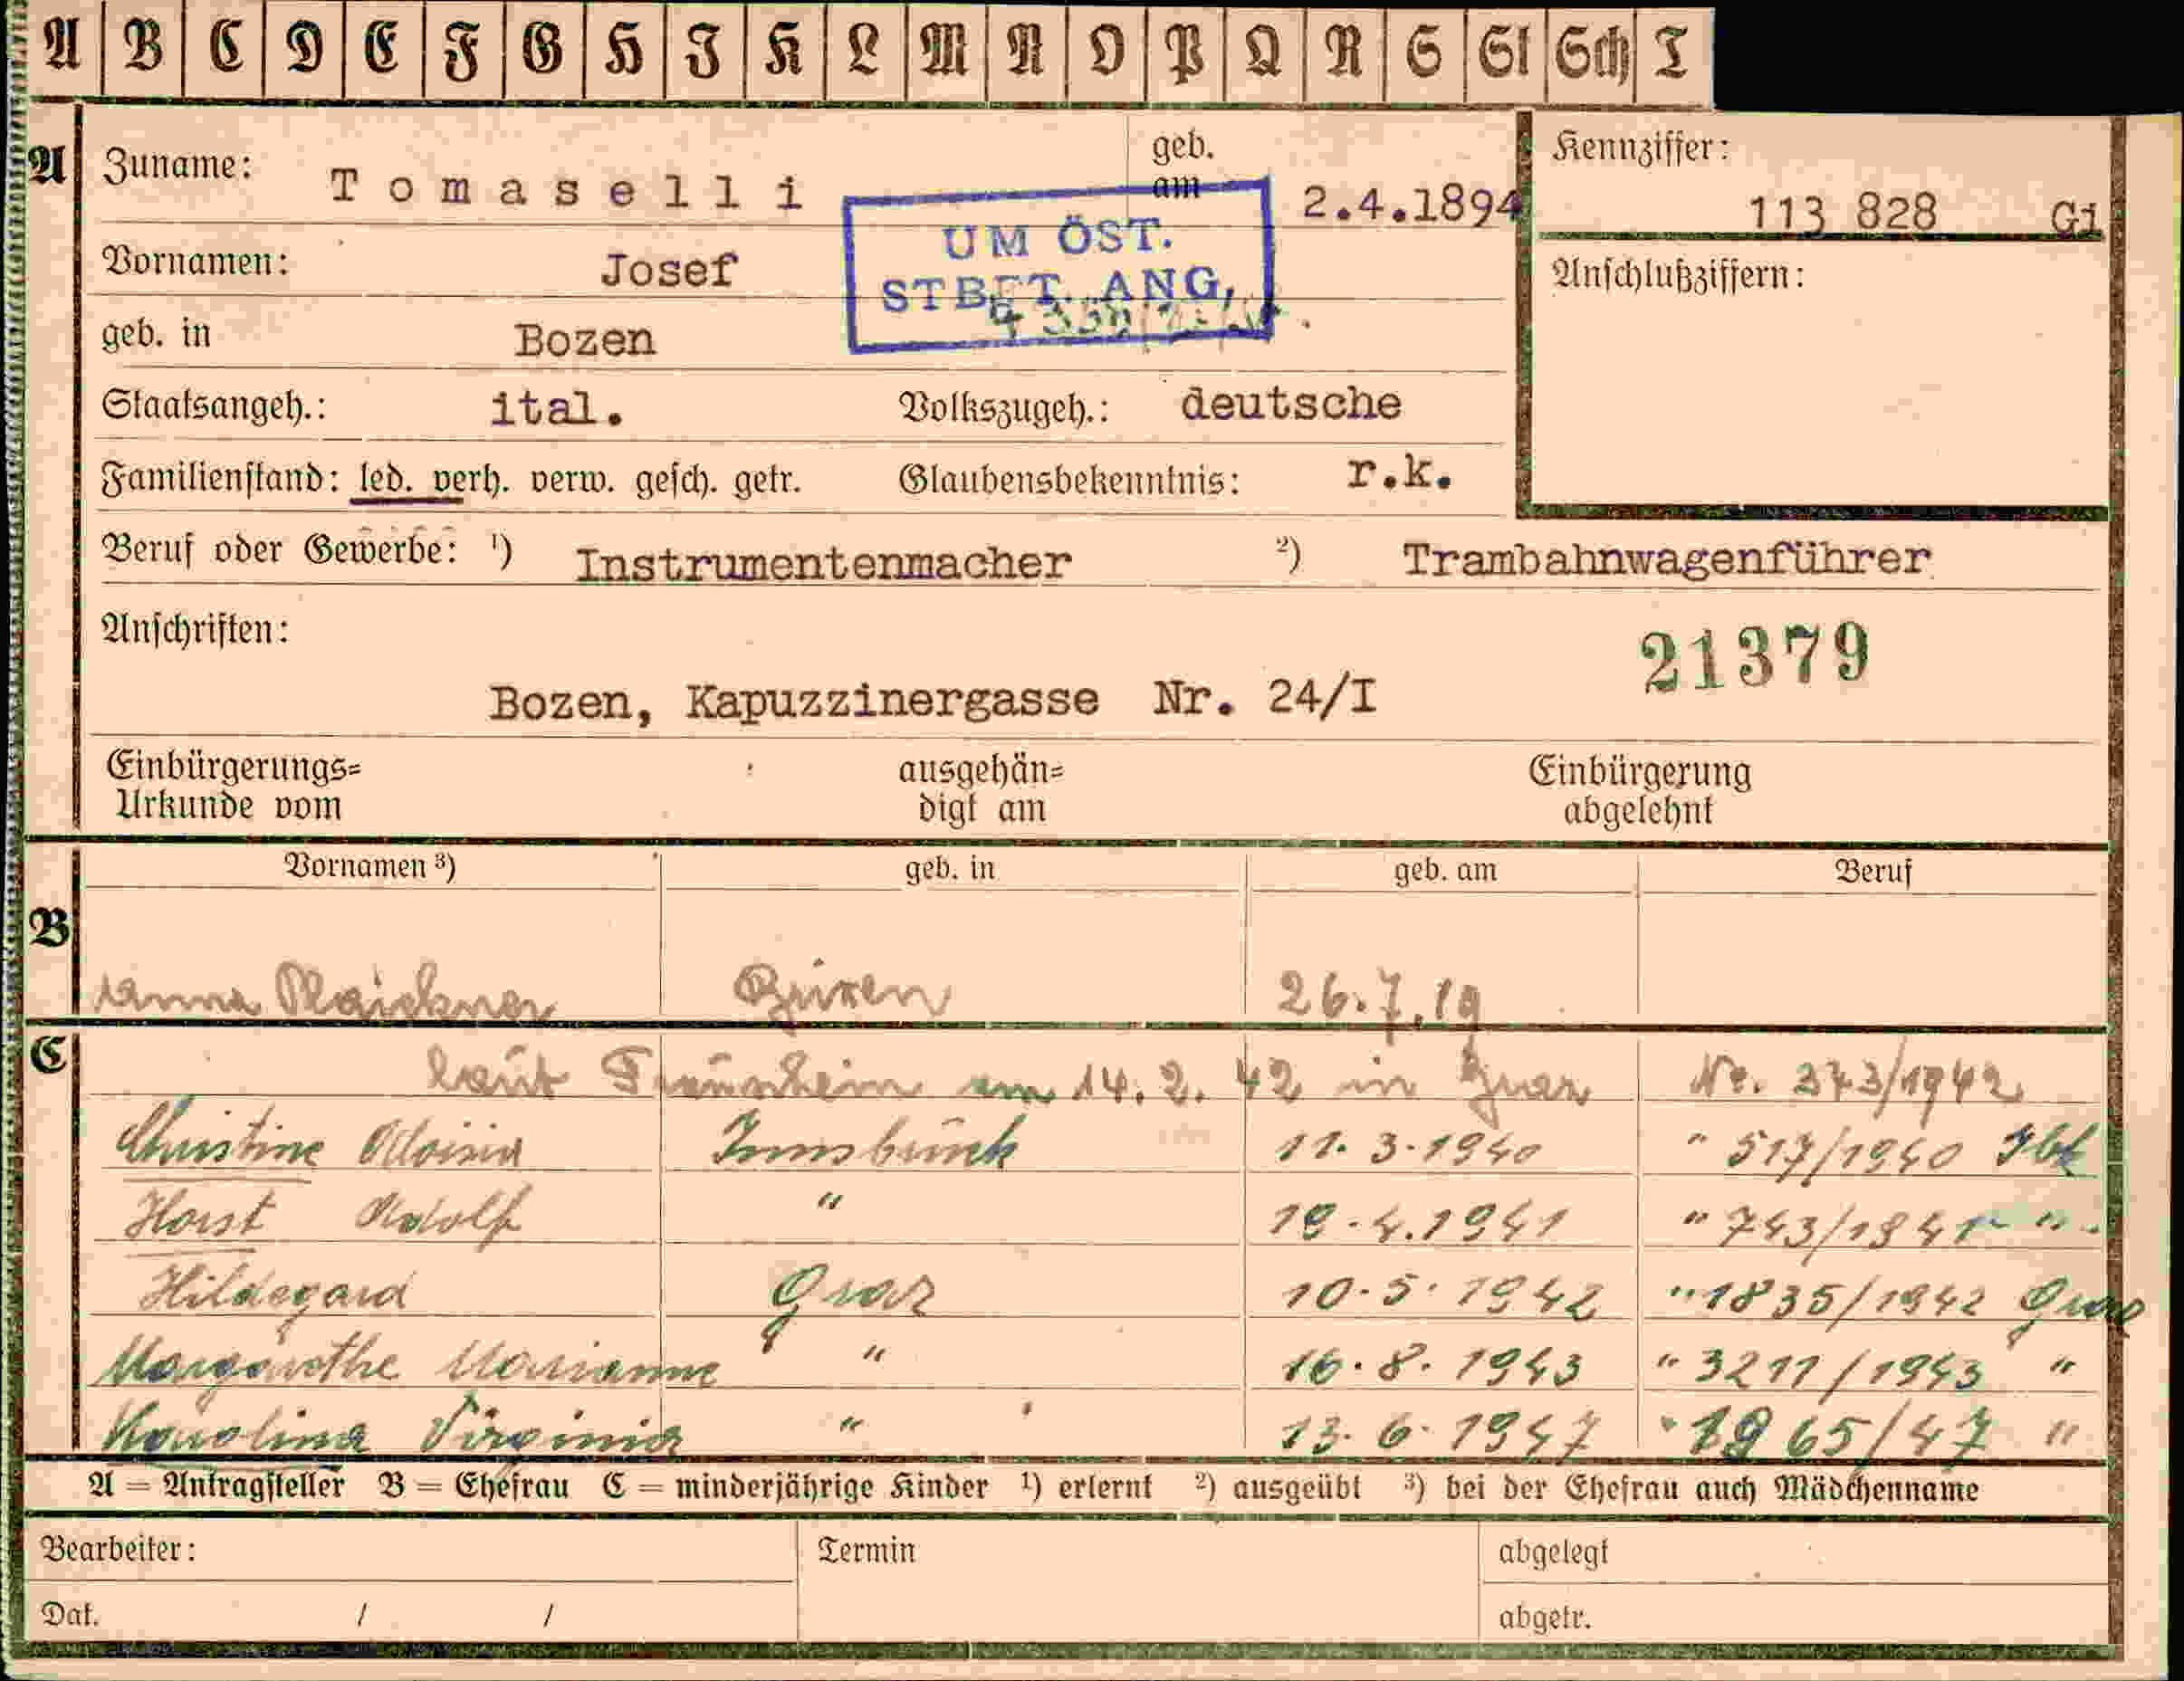 A B C D E F G H J K L M N O P Q R S St Sch T
A Zuname: Tomaselli geb. am 2.4.1894 Kennziffer: 113 828 Gi
UM ÖST.
STBET. ANG,
Vornamen: Josef Anschlußziffern:
geb. in Bozen
Staatsangeh.: ital. Volkszugeh.: deutsche
Familienstand: led. verh. verw. gesch. getr. Glaubensbekenntnis: r.k.
Beruf oder Gewerbe: ¹) Instrumentenmacher ²) Trambahnwagenführer
Anschriften: 21379
Bozen, Kapuzzinergasse Nr. 24/I
Einbürgerungs= ausgehän= Einbürgerung
Urkunde vom digt am abgelehnt
Vornamen ³) geb. in geb. am Beruf
B
Anna Brixen 26.7.19
C laut Trauschein am 14.2.42 in Graz Nr. 373/1942
Christine Aloisia Innsbruck 11.3.1940 " 517/1940 Ibk
Horst Adolf " 19.4.1941 " 743/1941 "
Hildegard Graz 10.5.1942 " 1835/1942 Graz
Margarethe Marianne " 16.8.1943 " 3211/1943 "
Karolina Virginia " 13.6.1947 " 1965/47 "
A = Antragsteller B = Ehefrau C = minderjährige Kinder ¹) erlernt ²) ausgeübt ³) bei der Ehefrau auch Mädchenname
Bearbeiter: Termin abgelegt
Dat. / / abgetr.